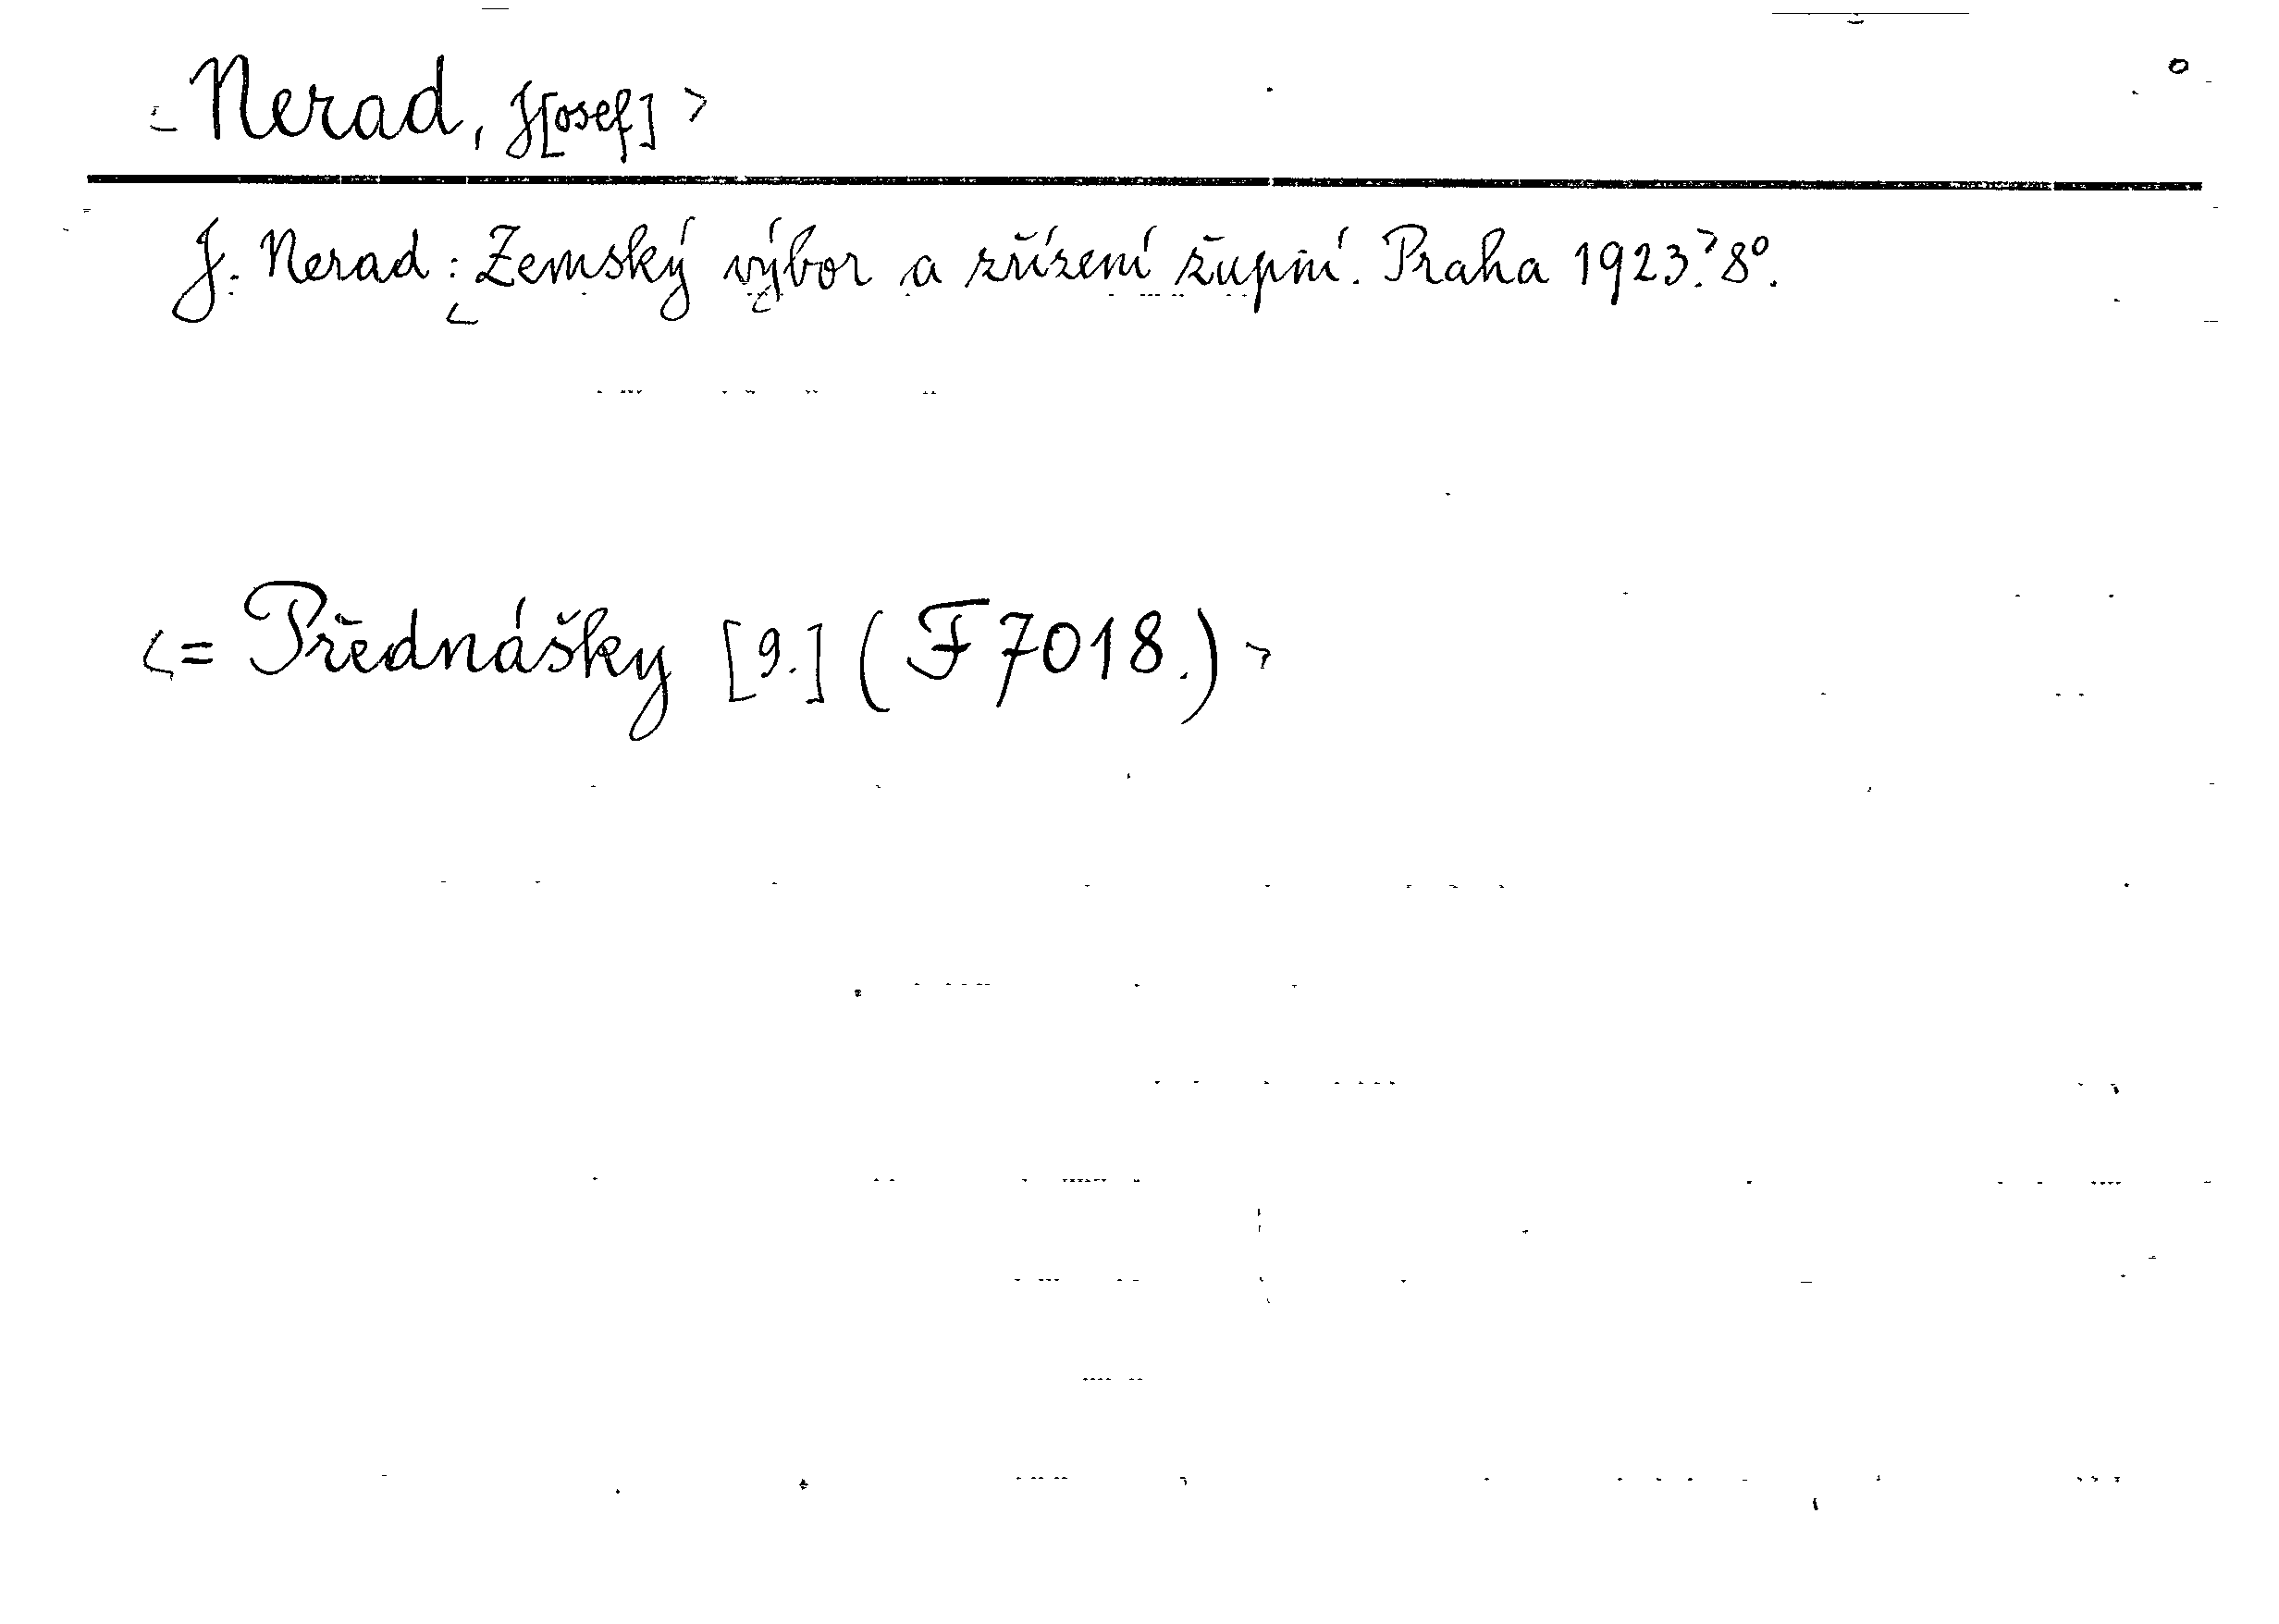 <Nerad, J[osef]>
J. Nerad: <Zemský výbor a zřízení župní. Praha 1923.> 8°.
<= Přednášky [9.] (F 7018.)>